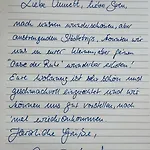 Liebe Annett, lieber Sven,
nach einem wunderschönen, aber
anstrengenden Städtetrip, konnten wir
uns in eurer kleinen, aber feinen
"Oase der Ruhe" wunderbar erholen!
Eure Wohnung ist sehr schön und
geschmackvoll eingerichtet und wir
können uns gut vorstellen, noch
mal wiederzukommen.
Herzliche Grüße,